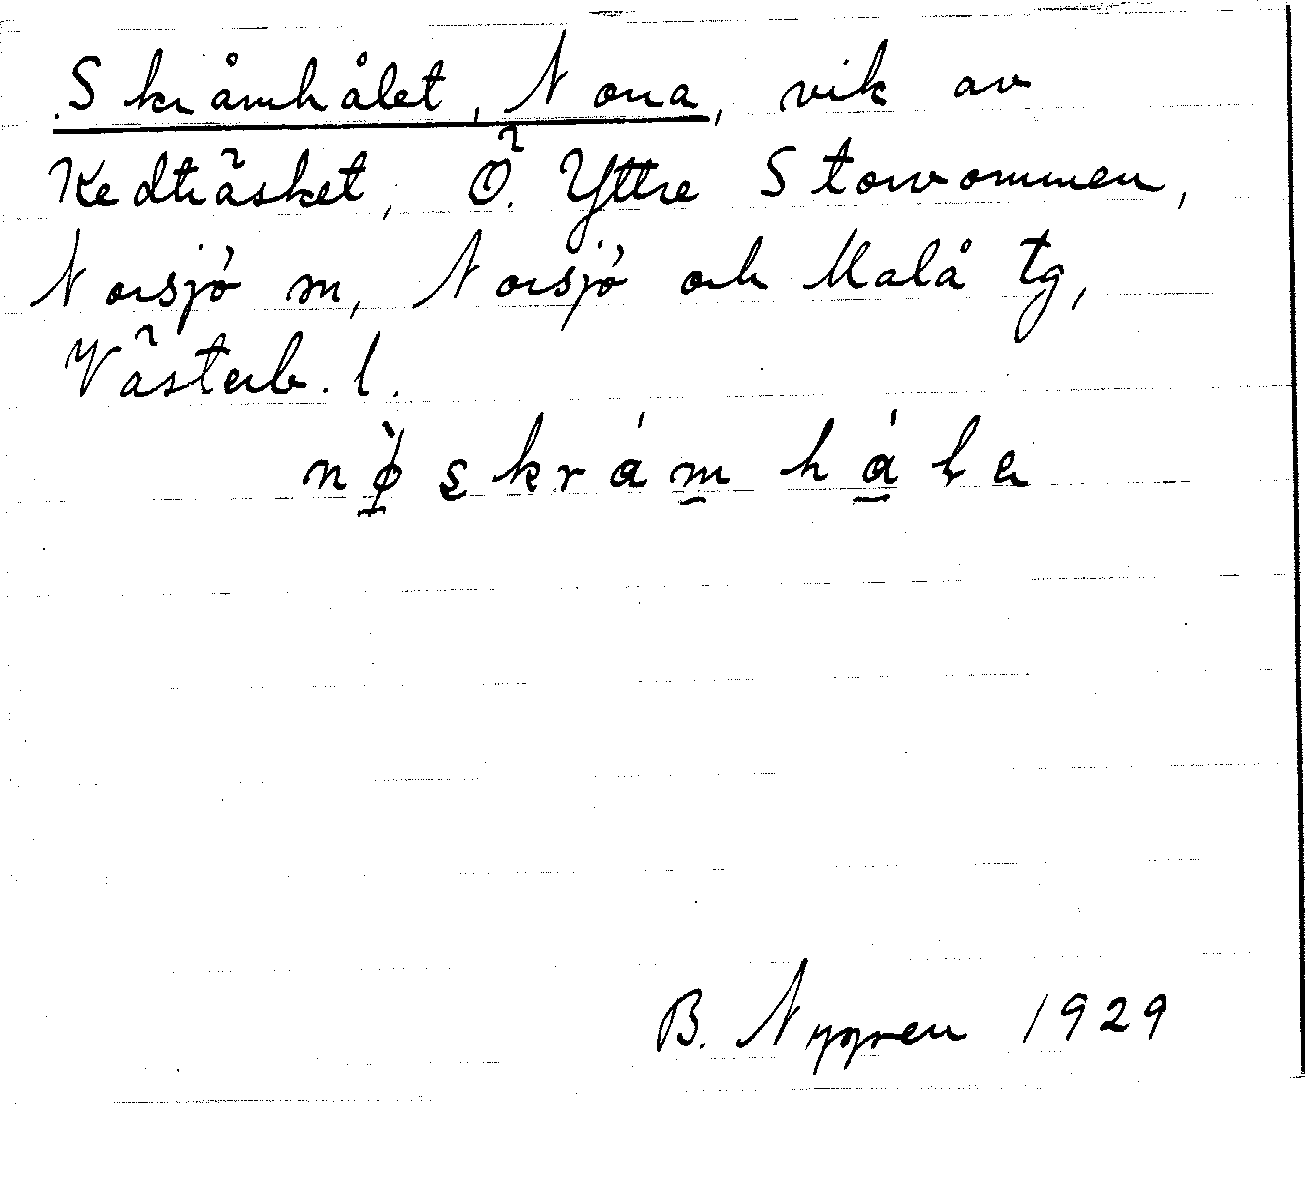 Skråmhålet, Norra, vik av
Kedträsket, Ö. Yttre Storvommen,
Norsjö sn, Norsjö och Malå tg,
Västerb. l.
B. Nygren 1929